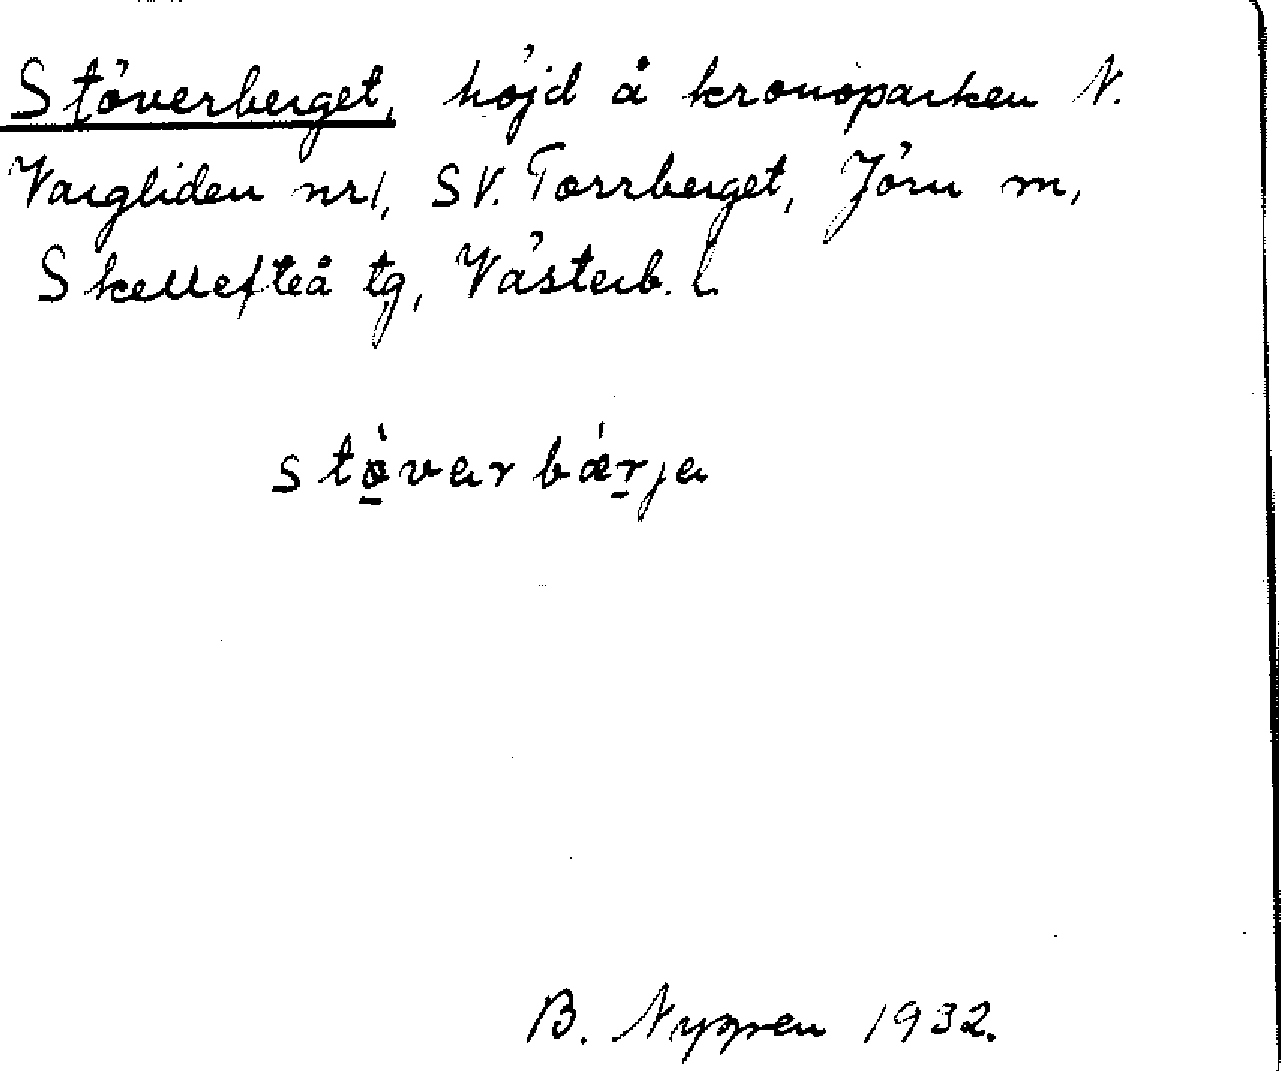 Stöverberget, höjd å kronoparken N.
Vargliden nr 1, SV. Torrberget, Jörn m,
Skellefteå tg, Västerb. l.
stø̱̀varbæ̀ṟja
B. Nygren 1932.